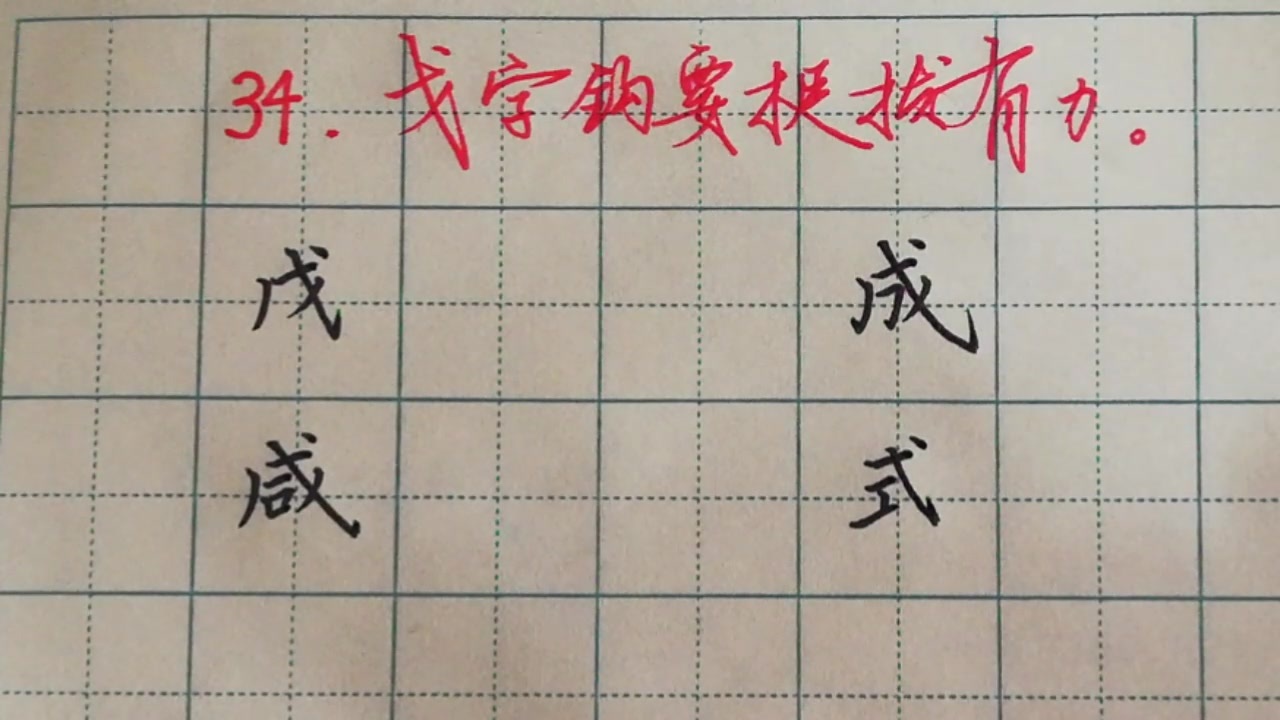 34.戈字钩要挺拔有力。
戊 成
咸 式